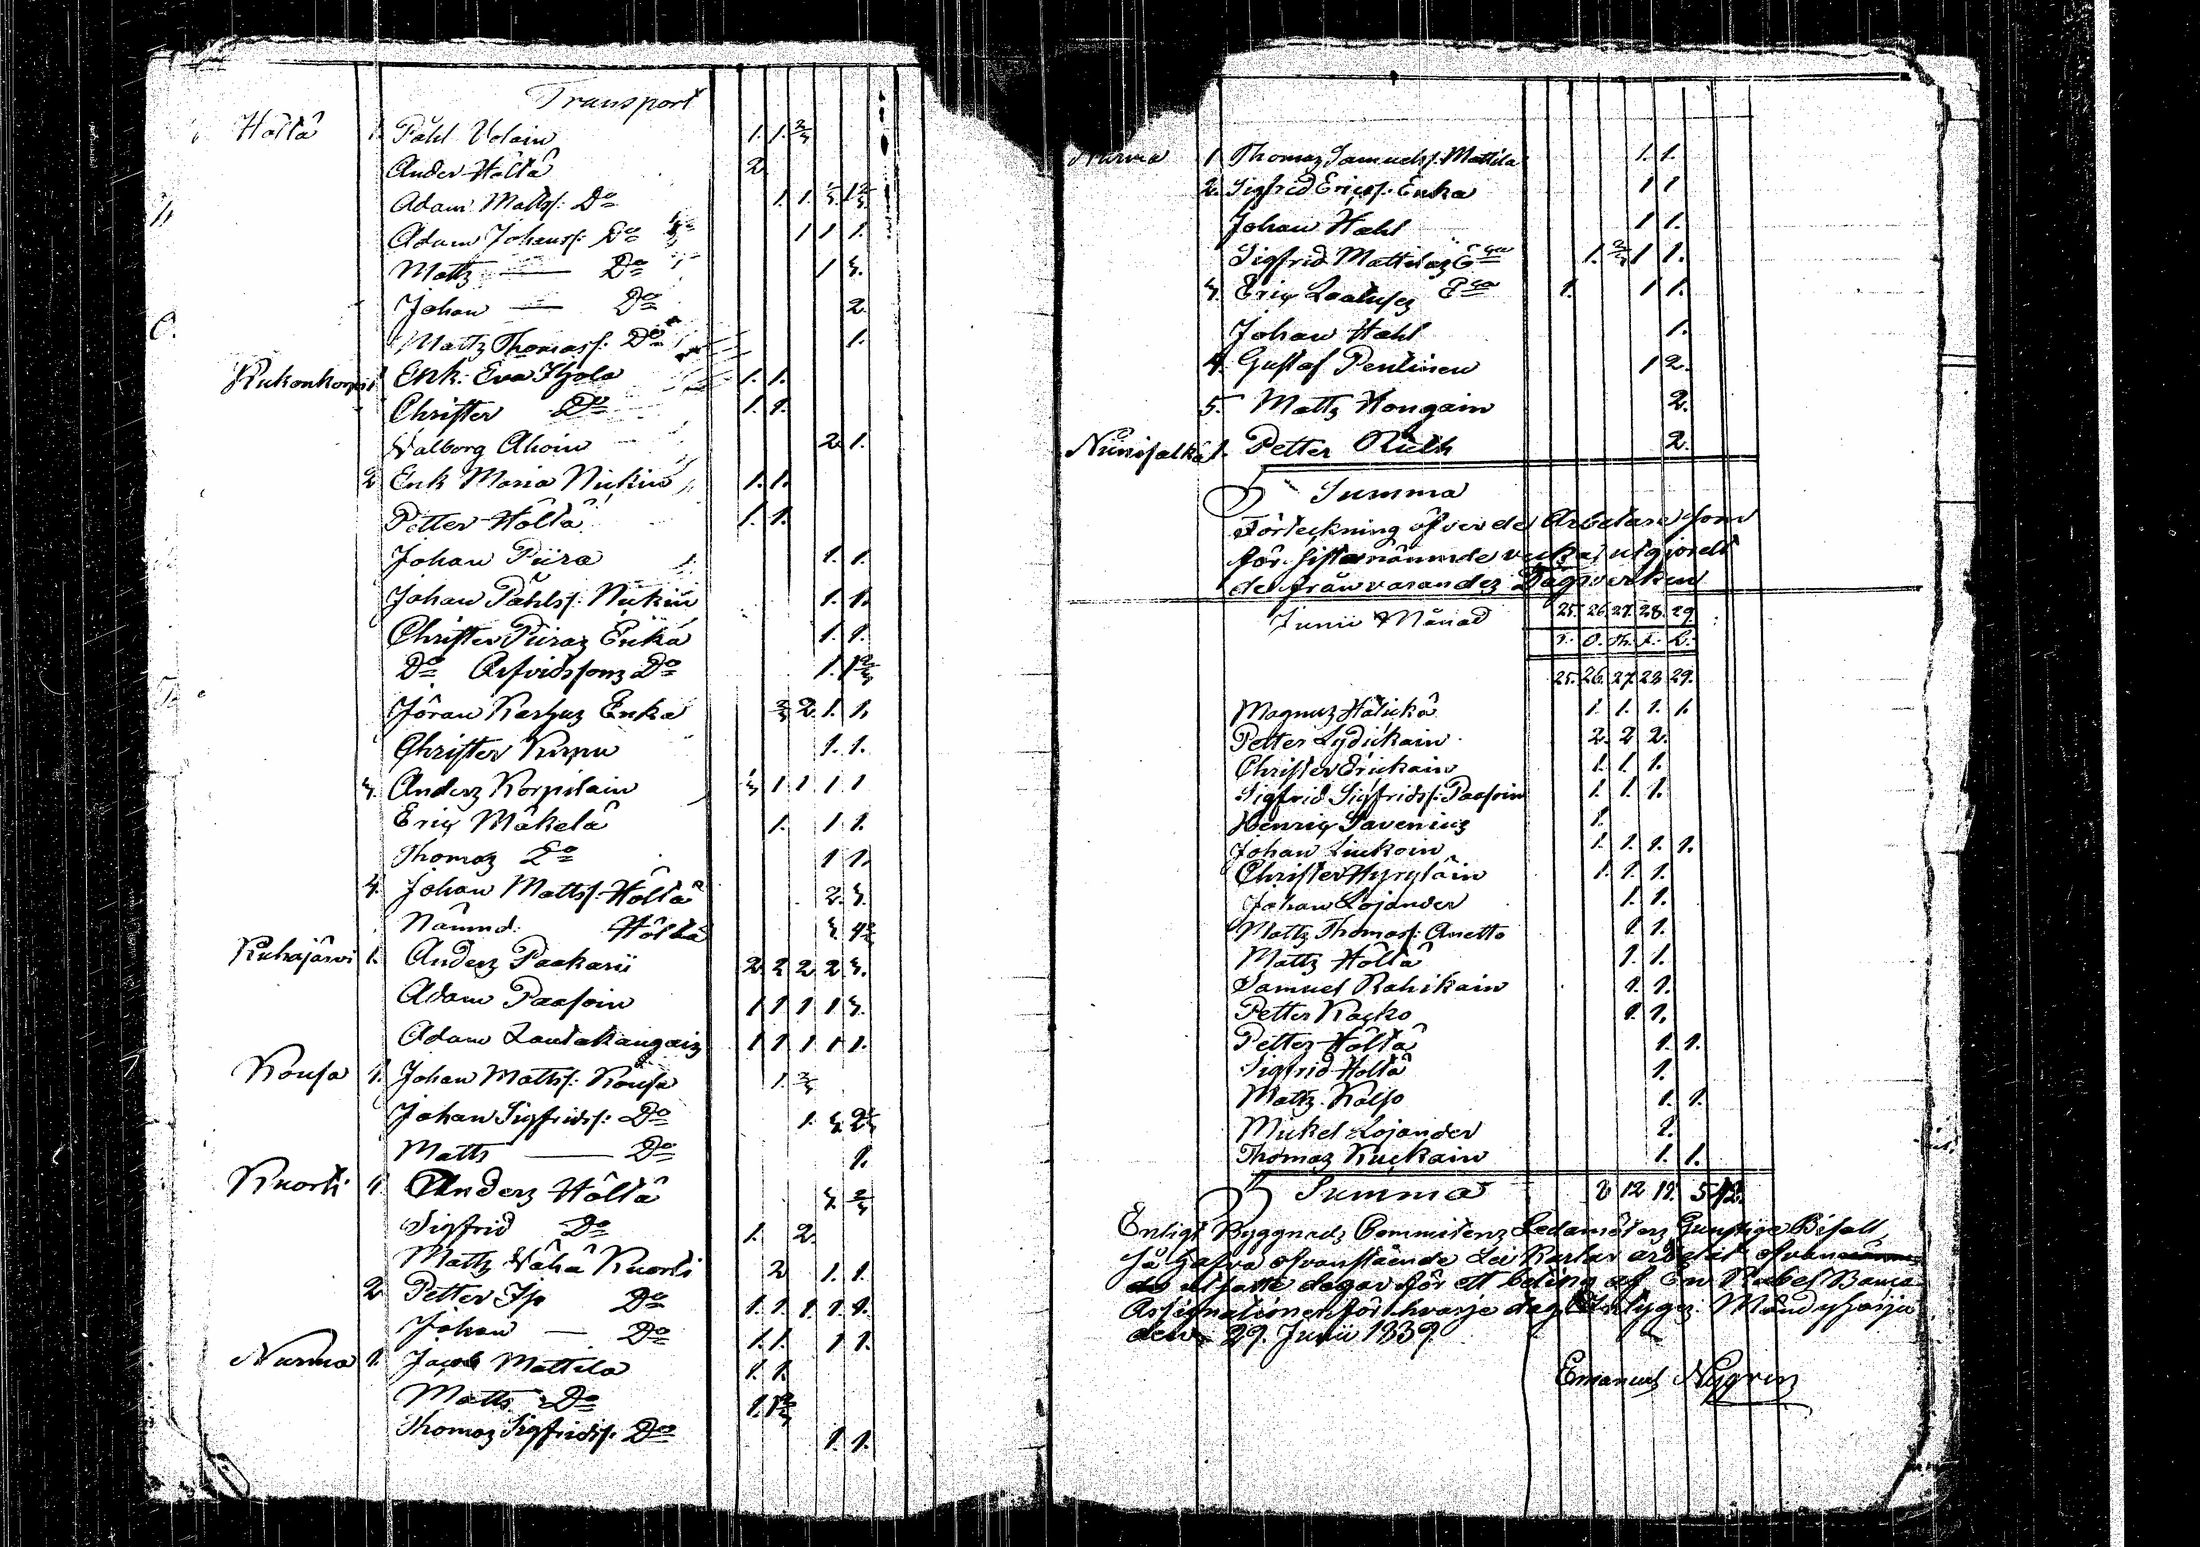 Transport
Höltä 1. Påhl Volain 1. 1. 2/3
Ander Höltä 2
Adam Matts: Do 1. 1.
Adam Johans: Do 1 1 1.
Matz — Do 1
Johan — Do 2
Mattz Thomas: Do 1.
Kukonkorpi 1 Enk: Eva Ilola 1. 1.
Christer Do 1. 1.
Valborg Ahoin 2. 1.
2 Enk Maria Nickin 1. 1.
Petter Höltä 1. 1.
Johan Piira 1. 1.
Johan Påhls: Nickin 1. 1.
Christer Piiraz Enka 1. 1.
Do Arfvidssonz Do 1. 1 2/3
Jöran Enka 2/3 2. 1. 1.
Christer Kurpu 1. 1.
3. Anderz Korpilain 1 1 1 1
Eriq Mäkelä 1. 1 1.
Thomaz Do 1 1.
4. Johan Matts: Höltä 2. 3.
Nämnd: Höltä
Kuhajärvi 1. Anderz Paakarii 2 2 2 2 3.
Adam Paasoin 1 1 1 1 3.
Adam Lautakangaiz 1 1 1 1 1.
Kousa 1. Johan Matts: Kousa 1. 2/3
Johan Sigfrids: Do 1.
Matts — Do 1.
Kuorti 1. Anderz Höltä
Sigfrid Do 1. 2.
Mattz Vähä Kuorti 2 1. 1.
2 Petter Iso Do 1. 1. 1. 1. 1.
Johan — Do 1. 1. 1 1.
Nurma 1. Jacob Mattila 1. 1.
Matts Do 1. 1 2/3
Thomaz Sigfrids: Do 1. 1.
Nurma 1 Thomaz Samuels: Mattila 1. 1.
2. Sigfrid Erics: Enka 1 1
Johan Hahl 1 1.
Sigfrid Mattilaz Enka 1. 2/3 1 1.
3. Eriq Do 1. 1 1.
Johan Hahl 1.
4. Gustaf Pentinen 1 2.
5. Mattz Hongain 2.
Niinisalka 1. Petter Ruth 2.
Summa
Förteckning öfver de Arbetare som
för sistnämnde vecka utgjordt
de frånvarandez Dagsverken
Junii Månad 25. 26. 27. 28. 29.
T. O. Th. F. L.
25. 26. 27. 28. 29.
Magnuz Hälickä 1. 1. 1. 1.
Petter Lydickain 2. 2 2.
Christer Erickain 1. 1. 1.
Sigfrid Sigfrids: Paasoin 1. 1. 1.
Henriq Saveniuz 1.
Johan Liukoin 1. 1. 1. 1.
Christer Hyryläin 1. 1. 1.
Johan Lojander 1. 1.
Mattz Thomas: Anetto 1. 1.
Mattz Höltä 1. 1.
Samuel Rahikain 1. 1.
Petter Kacko 1. 1.
Petter Höltä 1. 1.
Sigfrid Höltä 1.
Mattz Kölso 1. 1.
Mickel Lojander 1.
Thomaz Kuckain 1. 1.
Summa 8 12 5
Enligt Byggnadz Committenz Ledamöterz Gunstige Befall,
så hafva ofvanstående Karlar arbetat
dagar för ett beting af En Rubel Banco
Assignationer för hvarje dag Intygez. Mändyharju
den 29. Junii 1839
Emanuel Nygren